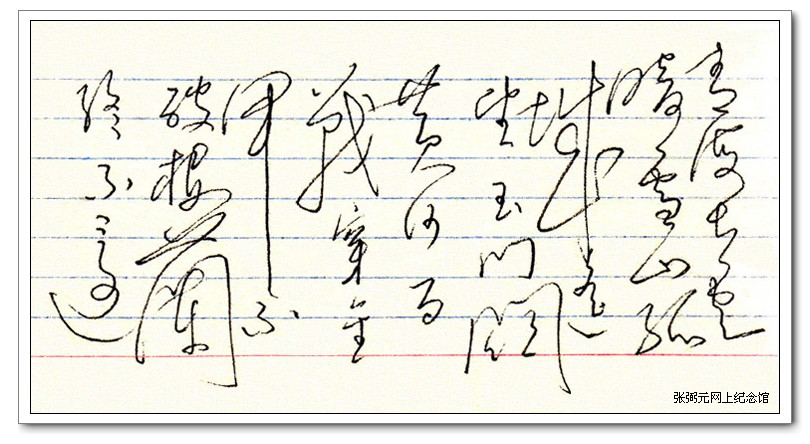 青海长雲
暗雪山孤
城遥
望玉门關
黄沙百
戰穿金
甲不
破楼蘭
终不還
张弼元网上纪念馆